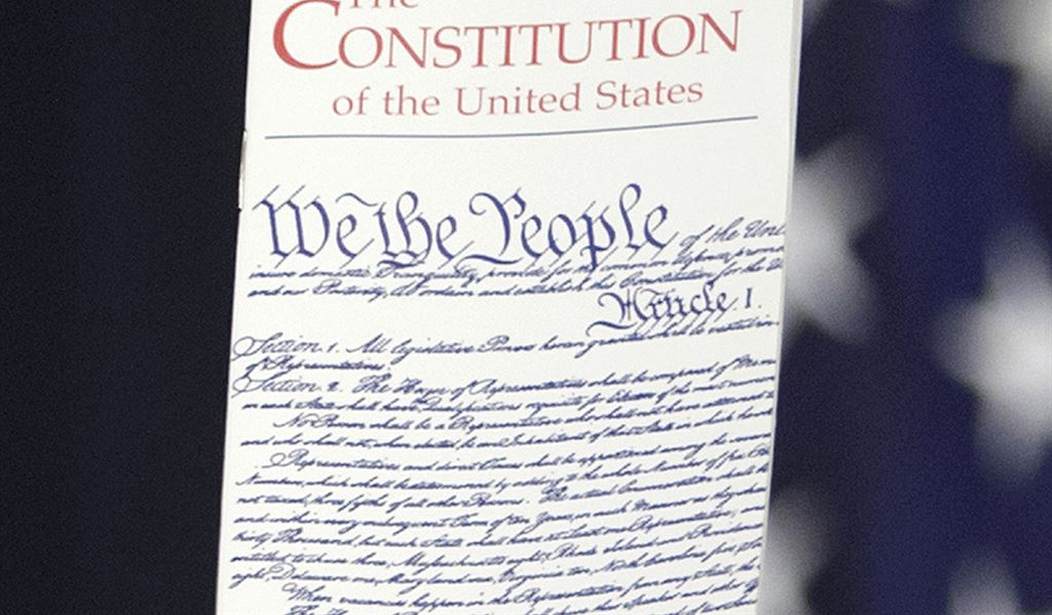 The
CONSTITUTION
of the United States
We the People of the Unit
insure domestic Tranquility, provide for the common defence, promo
and our Posterity, do ordain and establish this Constitution for the U
Article. I.
Section. 1. All legislative Powers herein granted shall be vested in
of Representatives.
Section. 2. The House of Representatives shall be composed of Mem
in each State shall have Qualifications requisite for Electors of the most numerous
No Person shall be a Representative who shall not have attained t
and who shall not, when elected, be an Inhabitant of that State in which he shall
Representatives and direct Taxes shall be apportioned among the several
Numbers, which shall be determined by adding to the whole Number of free
not taxed, three fifths of all other Persons. The actual Enumeration shall be
and within every subsequent Term of ten Years, in such Manner as they shall
thirty Thousand, but each State shall have at Least one Representative; and
entitled to chuse three, Massachusetts eight, Rhode Island and Providence
eight, Delaware one, Maryland six, Virginia ten, North Carolina five,
When vacancies happen in the Representation from any State, the